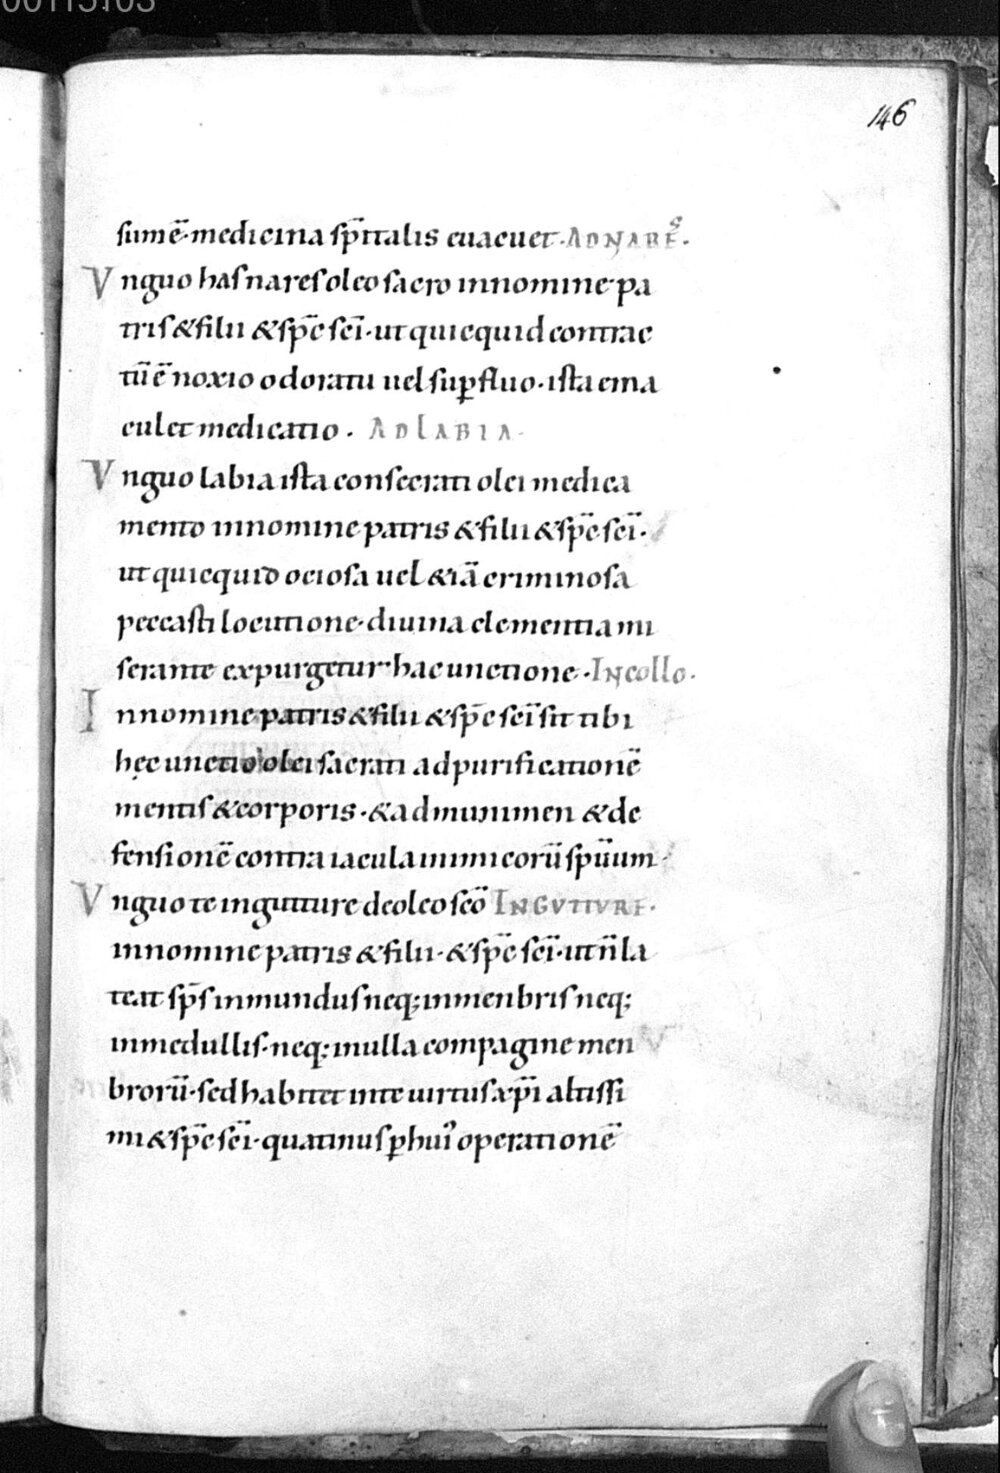 00115103
146
sumē·medicina sp̄italis euacuet·ADNARES·
Vnguo has nares oleo sacro innomine pa
tris & filii & sp̄c sc̄i·ut quicquid contrac
tū ē noxio odoratu uel sup̱fluo·ista ema
culet medicatio· AD LABIA·
Vnguo labia ista consecrati olei medica
mento innomine patris & filii & sp̄c sc̄i·
ut quicquid ociosa uel &iā criminosa
peccasti locutione·diuina clementia mi
serante expurgetur·hac unctione·In collo·
Innomine patris & filii & sp̄c sc̄i sit tibi
hęc unctio olei sacrati ad purificationē
mentis & corporis·& ad munimen & de
fensionē contra iacula inimicorū sp̄uum·
Vnguo te ingutture de oleo sc̄o IN GVTTVRE·
innomine patris & filii·& sp̄c sc̄i·ut n̄ la
teat sp̄s inmundus neq; inmenbris neq;
inmedullis·neq; inulla compagine men
brorū·sed habitet inte uirtus xp̄i altissi
mi & sp̄c sc̄i·quatinus p̱ hui' operationē